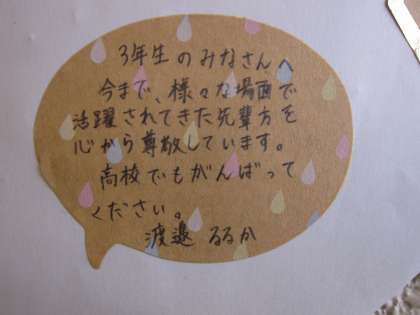 3年生のみなさんへ
今まで、様々な場面で
活躍されてきた先輩方を
心から尊敬しています。
高校でもがんばって
ください。
渡邉 るるか